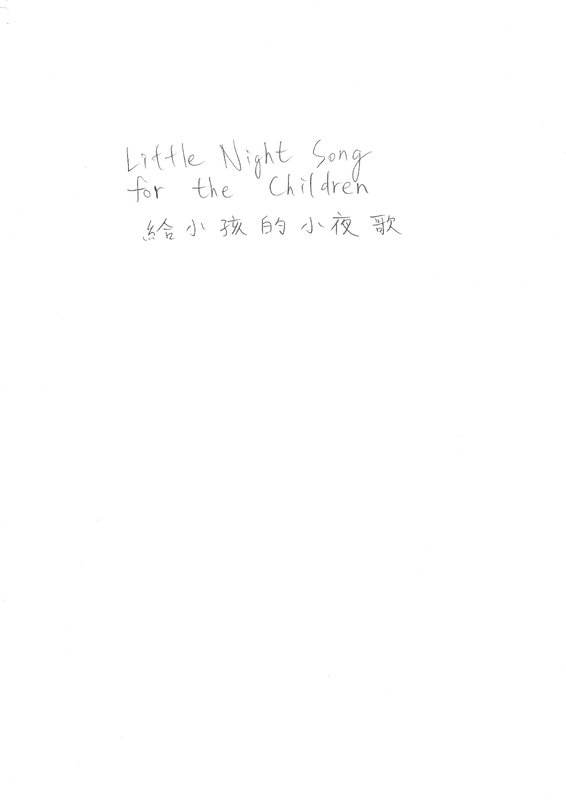 Little Night Song
for the Children
給小孩的小夜歌